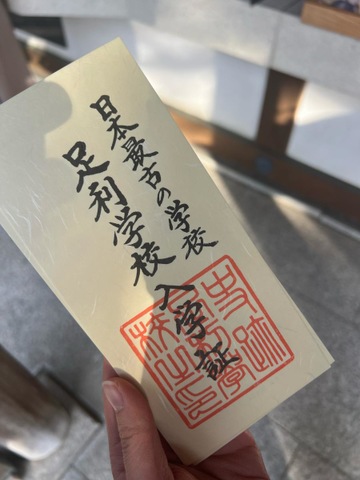 日本最古の学校
足利学校 入学証
史跡
足利學
校之印